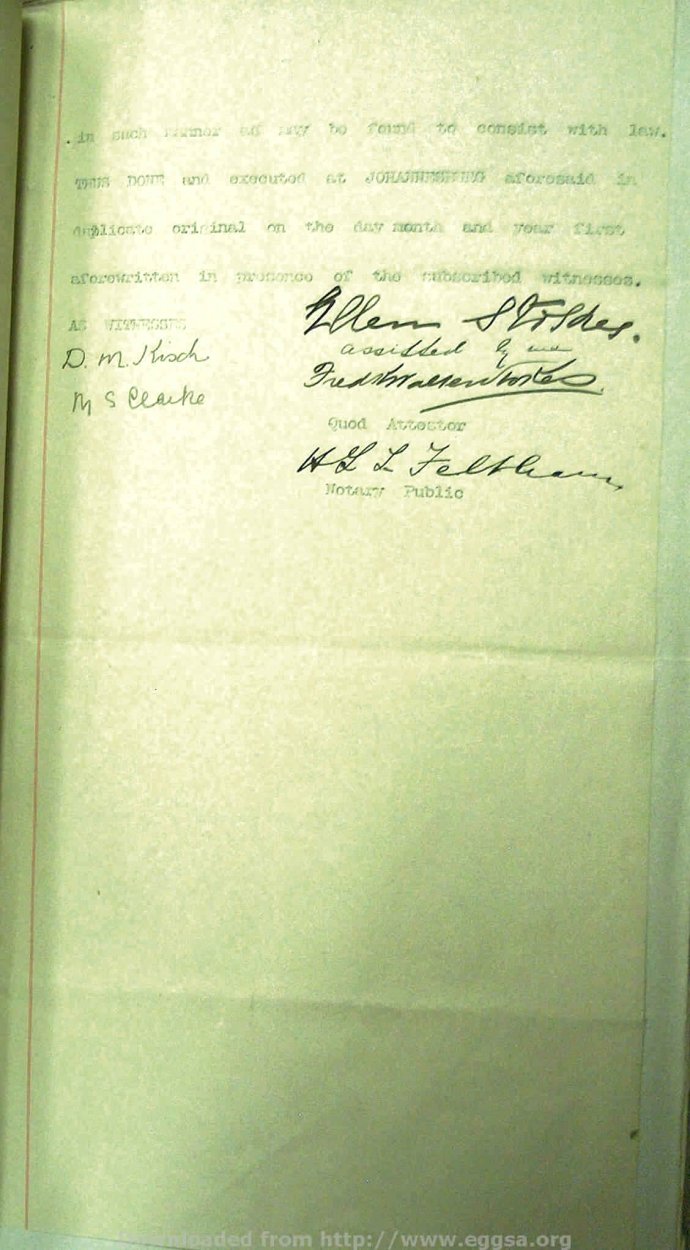 in such manner as may be found to consist with law.
THUS DONE and executed at JOHANNESBURG aforesaid in
duplicate original on the day month and year first
aforewritten in presence of the subscribed witnesses.
AS WITNESSES
Ellen Stokes.
D. M. Kisch
assisted by me
Fredk Walter Stokes
M S Clarke
Quod Attestor
H G L Feltham
Notary Public
Downloaded from http://www.eggsa.org